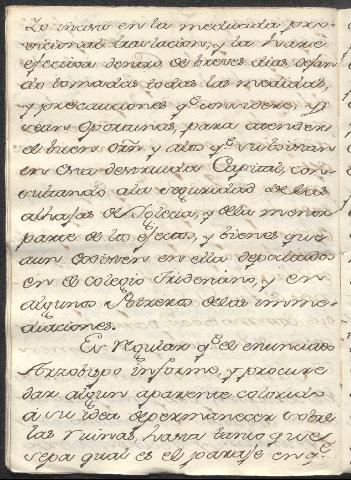 Lo mismo en la meditada pro-
vicional traslacion, y la haré
efectiva dentro de breves dias dejan-
do tomadas todas las medidas,
y precauciones q.e considere, y
sean oportunas, para atender
el buen orñ. y
en esta destruida Capital, con-
sultando a la seguridad de las
alhajas de Iglecia, y dela menor
parte de los efectos, y bienes que
aun existen en ella depositados
en el colegio Tridentino, y en
algunos Potreros delas inme-
diaciones.
Es regular q.e el enunciado
Arzobispo informe, y procure
dar algun aparente colorido
á su idea de permanecer sobre
las ruinas, hasta tanto que se
sepa qual es el paraje en q.e